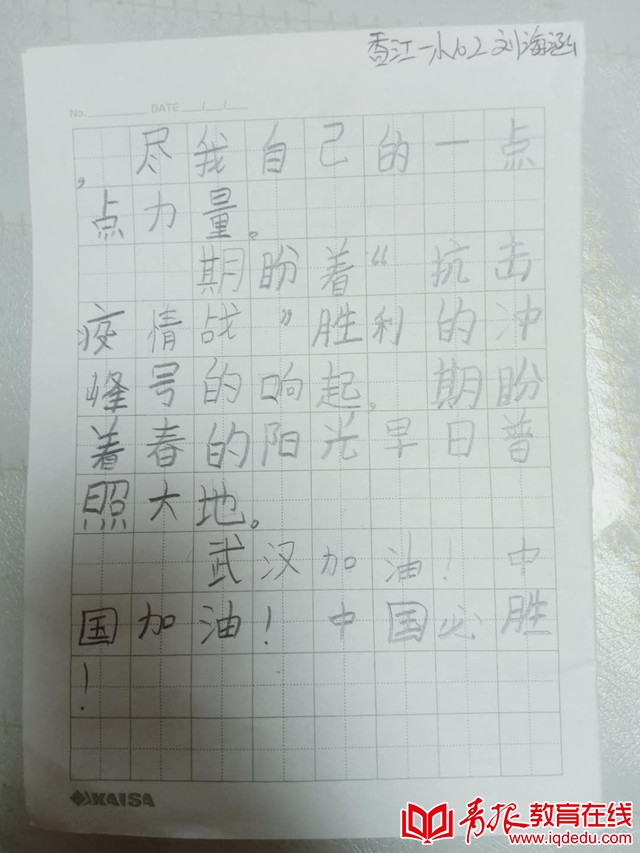 香江一小6.2刘海涵
No. DATE / /
，尽我自己的一点
点力量。
期盼着“抗击
疫情战”胜利的冲
峰号的响起，期盼
着春的阳光早日普
照大地。
武汉加油！中
国加油！中国必胜
！
KAISA
青报教育在线
www.iqdedu.com